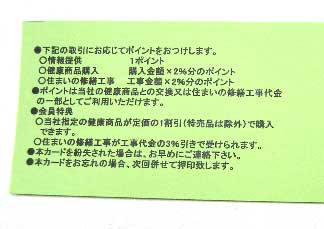 ●下記の取引に応じてポイントをおつけします。
〇情報提供 1ポイント
〇健康商品購入 購入金額×2%分のポイント
〇住まいの修繕工事 工事金額×2%分のポイント
●ポイントは当社の健康商品との交換又は住まいの修繕工事代金
の一部としてご利用いただけます。
●会員特典
〇当社指定の健康商品が定価の1割引(特売品は除外)で購入
できます。
〇住まいの修繕工事が工事代金の3%引きで受けられます。
●本カードを紛失された場合は、お早めにご連絡下さい。
●本カードをお忘れの場合、次回併せて押印致します。